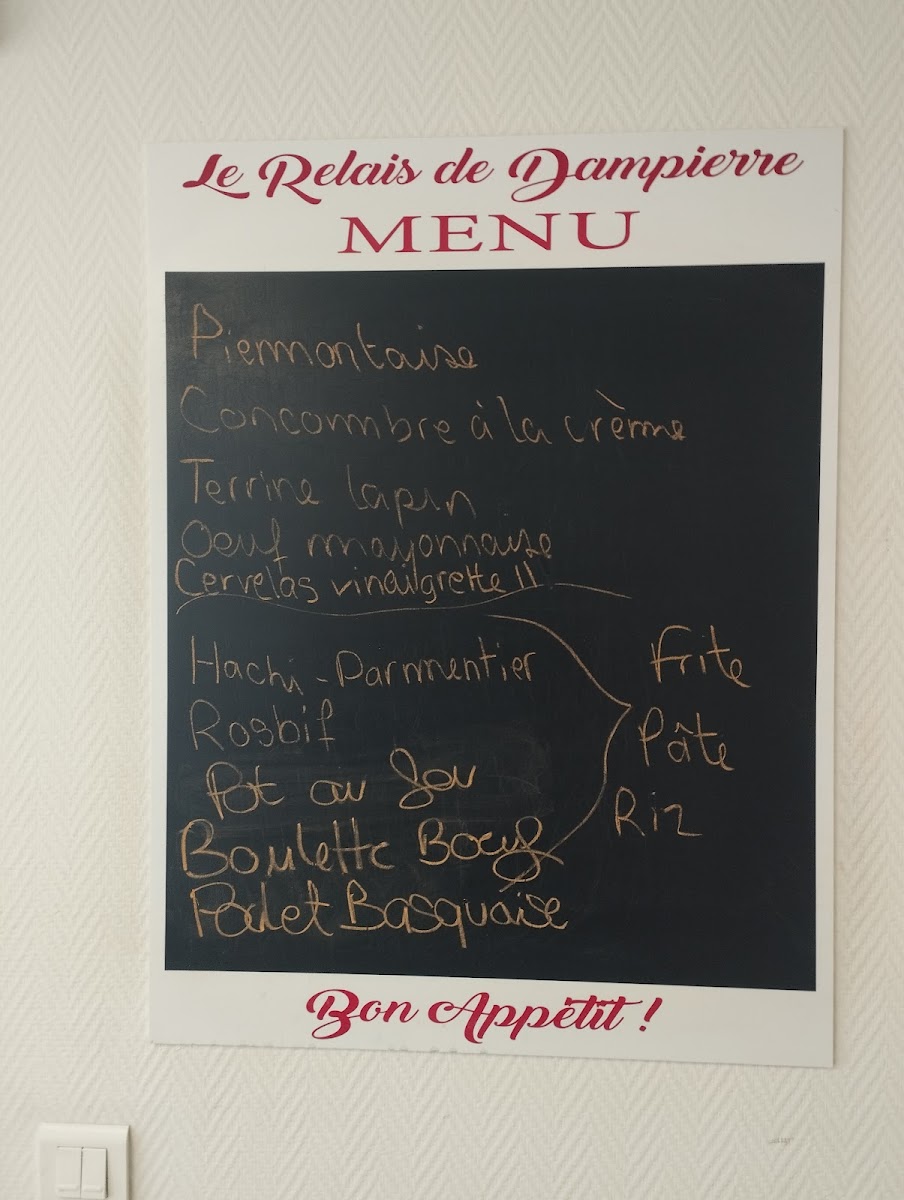 Le Relais de Dampierre
MENU
Piermontaise
Concombre à la crème
Terrine lapin
Oeuf mayonnaise
Cervelas vinailgrette !!
Hachi-Parmentier
Rosbif
Pot au feu
Boulette Boeuf
Poulet Basquaise
Frite
Pâte
Riz
Bon Appétit !